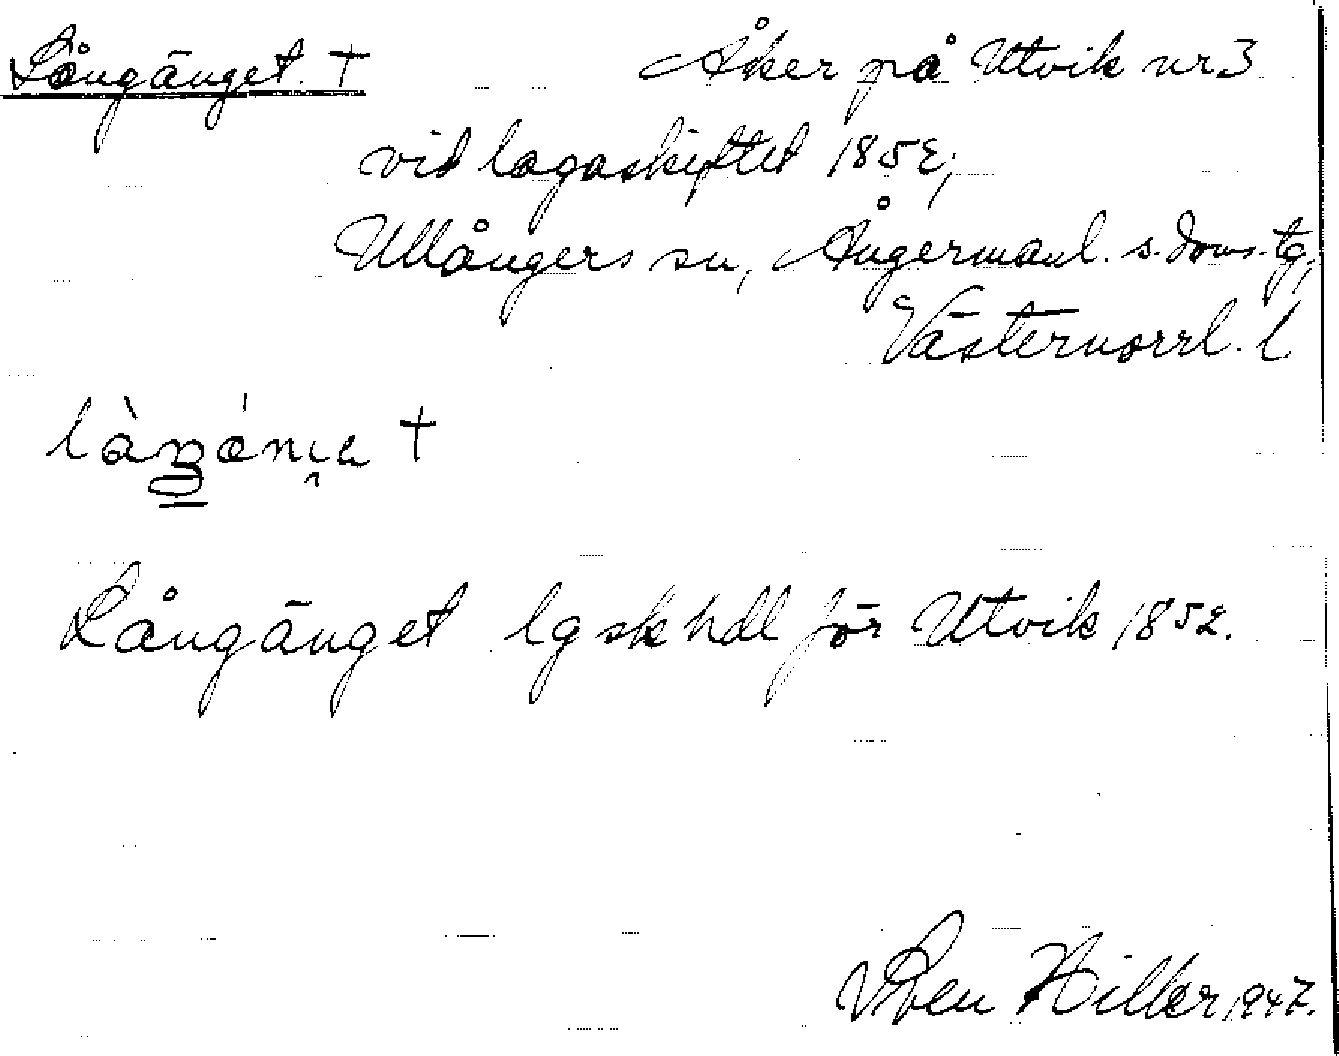 Långänget. † Åker på Utvik nr 3
vid lagaskiftet 1852,
Ullångers sn, Ångermanl. s. doms. tg,
Västernorrl. l
Långänget lgsk hdl för Utvik 1852.
Sven Hiller 1947.